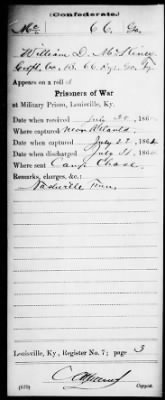 (Confederate.)
Mc 66 Ga.
William D. McKiney
Capt, Co. B. 66 Ga.
Appears on a roll of
Prisoners of War
at Military Prison, Louisville, Ky.
Date when received July 186
Where captured Near Atlanta
Date when captured July 22 1864
Date when discharged July 31 186
Where sent Camp Chase
Remarks, charges, &c.:
Nashville Tenn
Louisville, Ky., Register No. 7; page 3
Copyist.